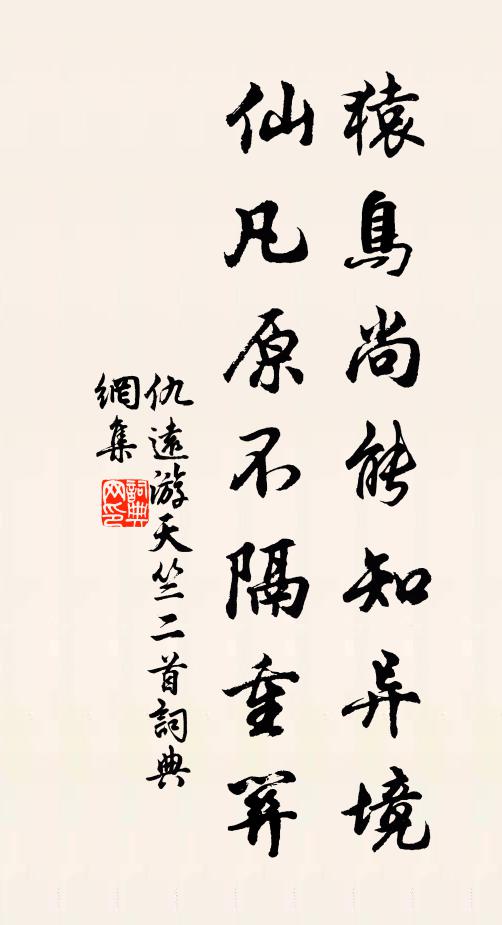 猿鳥尚能知异境
仙凡原不隔重關
仇遠游天竺二首詞典
網集
詞典
网印